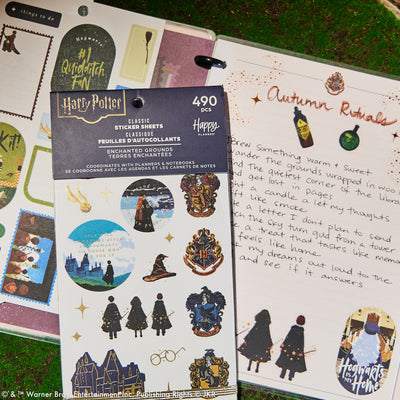 things to do
Hogwarts'
#1
Quidditch
FAN
Kit!
Harry Potter
490
pcs
CLASSIC
STICKER SHEETS
CLASSIQUE
FEUILLES D'AUTOCOLLANTS
Happy
PLANNER
ENCHANTED GROUNDS
TERRES ENCHANTÉES
COORDINATES WITH PLANNERS & NOTEBOOKS
SE COORDONNE AVEC LES AGENDAS ET LES CARNETS DE NOTES
Autumn Rituals
Brew something warm & sweet
wander the grounds wrapped in wool
the quietest corner of the libra
get lost in pages
a candle & let my thoughts
like smoke
letter I don't plan to send
the sky turn gold from a tower
a treat that tastes like memo
feels like home
my dreams out loud to the
and see if it answers
Hogwarts
is my
Home
& ™ Warner Bros. Entertainment Inc. Publishing Rights © JKR